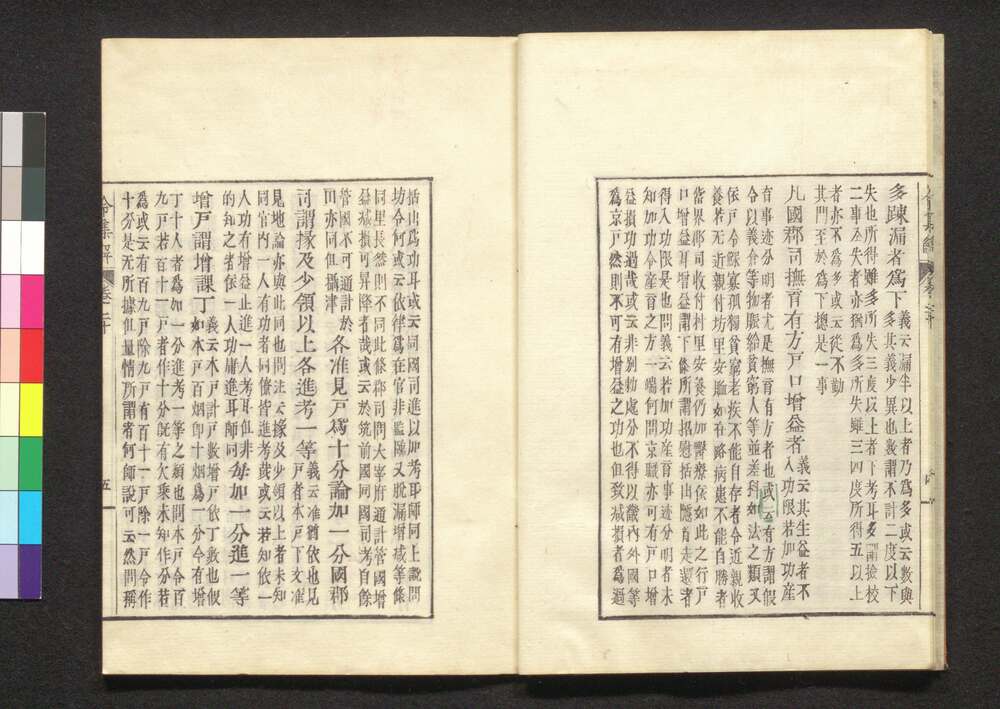 多疎漏者爲下 義云漏半以上者乃爲多或云數與
多其義少異也數謂不計二度以下
失也所得雖多所失三度以上者下考耳多謂撿校
二事並失者亦猶爲多所失雖三四度所得五以上
者亦不爲多或云從不勤
其門至於爲下揔是一事
凡國郡司撫育有方戸口增益者 義云其生益者不
入功限若加功産
育事迹分明者尤是撫育有方者也或云有方謂假
令以義倉等物賑給貧窮人等並差科如法之類又
依戸令鰥寡孤獨貧窮老疾不能自存者令近親收
養若無近親付坊里安䘏如在路病患不能自勝者
當界郡司收付村里安養仍加醫療依如此之行戸
口增益耳增益謂下條所謂招慰括出隱首走還者
得入功限是也問義云若加功産育事迹分明者未
知加功令産育之方一喘何問京職亦可有戸口增
益損功過哉或云非別勅處分不得以畿內外國等
爲京戸然則不可有增益之功也但致減損者爲過
括出爲功耳或云同國司進以加考耳師同上説問
坊令何或云依律爲在官非監臨又脫漏增減等條
同里長然則不同此條郡司問大宰府通計管國增
益減損可昇降者哉或云於筑前國同國司考自餘
管國不可通計於
田亦同但攝津 各准見戸爲十分論加一分國郡
司謂掾及少領以上各進考一等 義云准猶依也見
戸者本戸下文准
見地論亦與此同也問法云掾及少領以上者未知
同官內一人有功者同僚皆進考哉或云若知依一
人功有增益止進一人考耳但非
的知之者依一人功庸進耳師同 每加一分進一等
增戸謂增課丁 義云木戸計戸數增戸依丁數也假
如本戸百烟卽十烟爲一分今有增
丁十人者爲加一分進考一等之類也問本戸令百
九戸若百十一戸者作十分既有欠乘未知作分若
爲或云有百九戸除九戸有百十一戸除一戸令作
十分是无所據但量情所謂者何師説可云然問稱
令集解 卷二十 五